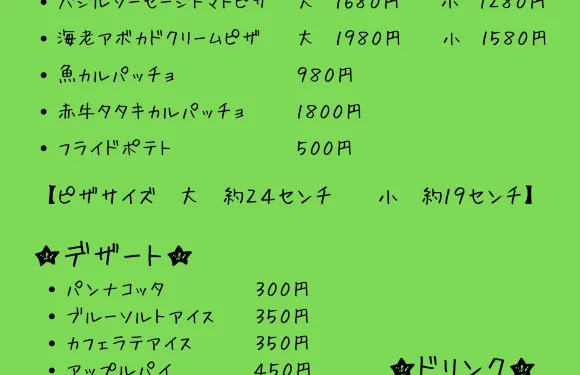 ・バジルソーセージトマトピザ 大 1680円 小 1280円
・海老アボカドクリームピザ 大 1980円 小 1580円
・魚カルパッチョ 980円
・赤牛タタキカルパッチョ 1800円
・フライドポテト 500円
【ピザサイズ 大 約24センチ 小 約19センチ】
★デザート★
・パンナコッタ 300円
・ブルーソルトアイス 350円
・カフェラテアイス 350円
・アップルパイ 450円
★ドリンク★